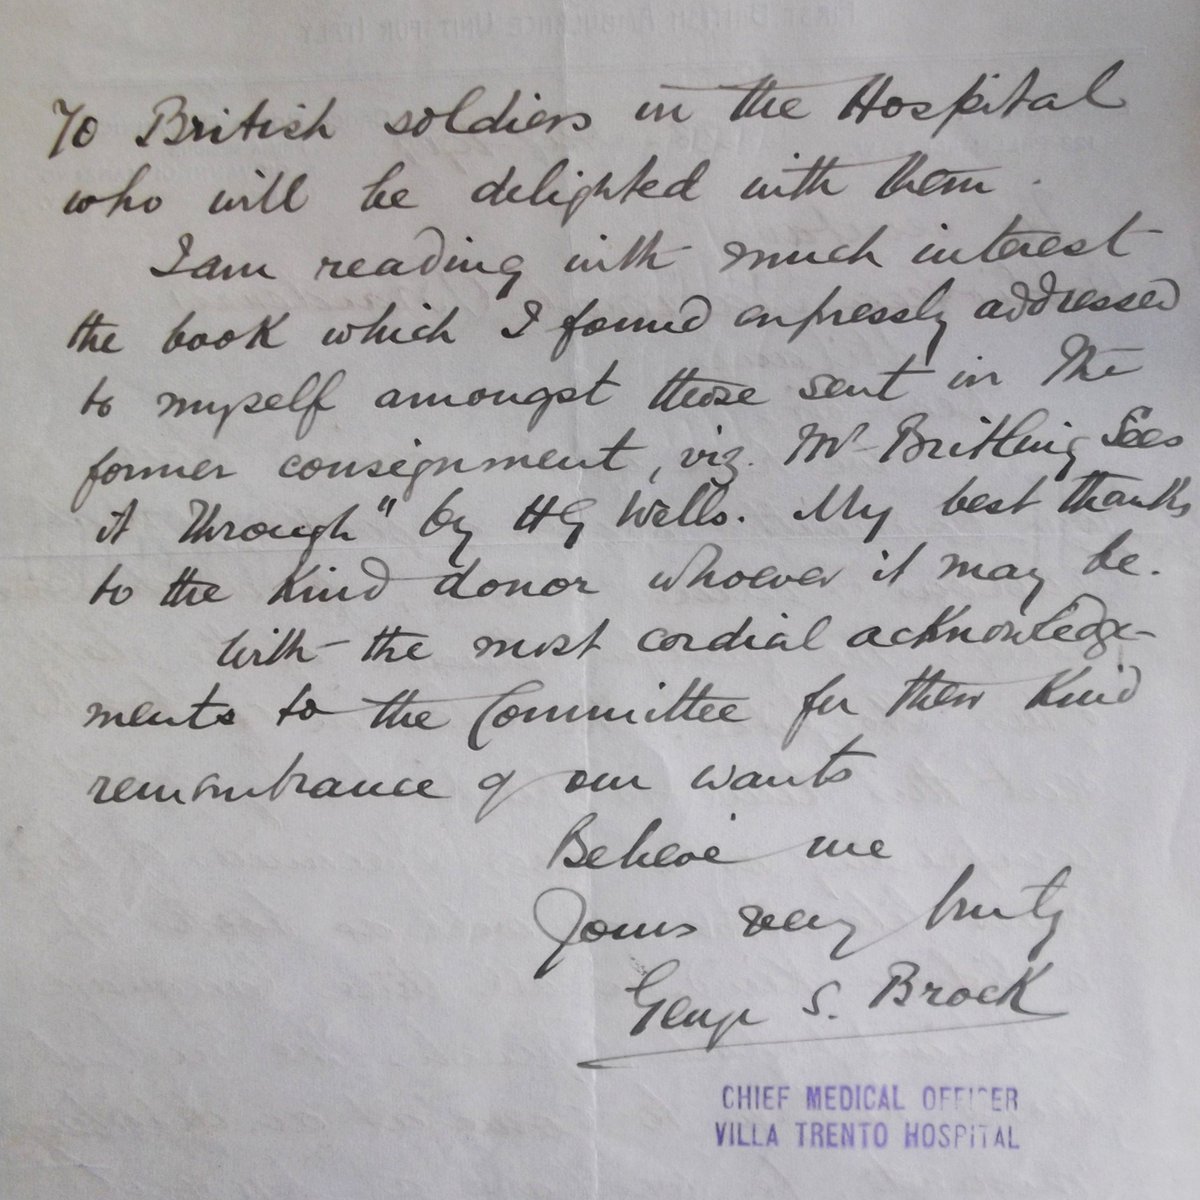 To British soldiers in the Hospital
who will be delighted with them.
I am reading with much interest
the book which I found expressly addressed
to myself amongst those sent in the
former consignment, viz. Mr Britling Sees
it Through" by HG Wells. My best thanks
to the kind donor whoever it may be.
With the most cordial acknowledge-
ments to the Committee for their kind
remembrance of our wants
Believe me
Yours very truly
George S. Brock
CHIEF MEDICAL OFFICER
VILLA TRENTO HOSPITAL